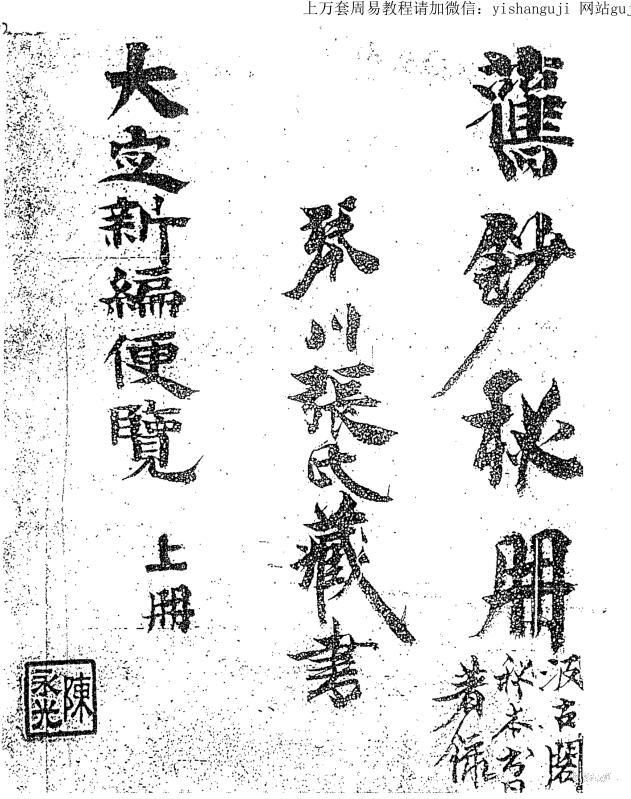 上万套周易教程请加微信：yishanguji 网站guj
舊鈔秘册
汲古閣
秘本書
著錄
川張氏藏書
大定新編便覽 上册
陳永光